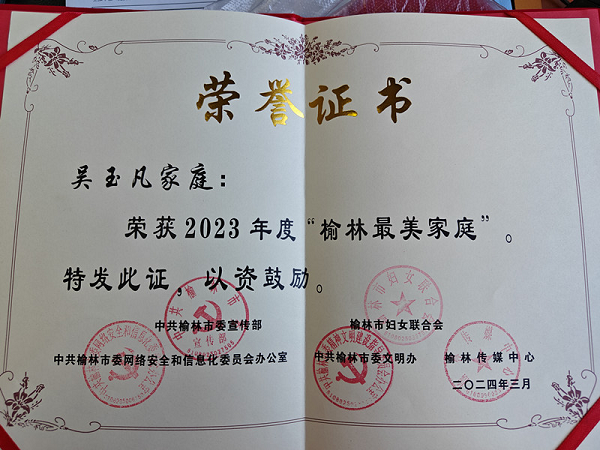 荣誉证书
吴玉凡家庭：
荣获2023年度“榆林最美家庭”。
特发此证，以资鼓励。
中共榆林市委宣传部 榆林市妇女联合会
中共榆林市委网络安全和信息化委员会办公室 中共榆林市委文明办 榆林传媒中心
二〇二四年三月